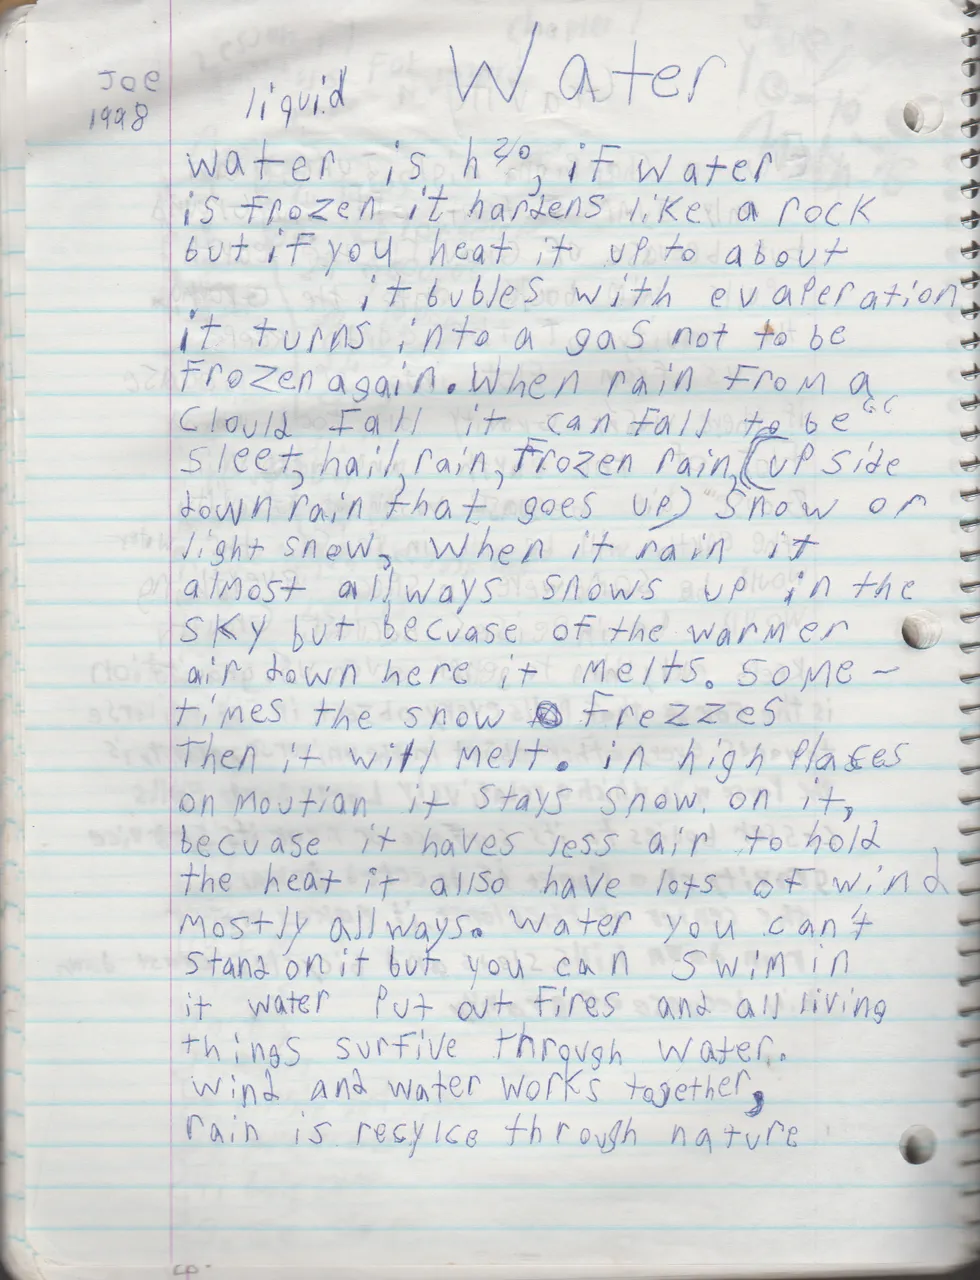 Joe
1998
liquid Water
water is h2/0, if water
is frozen it hardens like a rock
but if you heat it up to about
it bubles with evaperation
it turns into a gas not to be
frozen again. When rain from a
Clould fall it can fall to be
sleet, hail, rain, frozen rain, (up side
down rain that goes up) snow or
light snow, When it rain it
almost allways snows up in the
sky but becuase of the warmer
air down here it melts. some-
times the snow frezzes
Then it will melt. in high places
on moutian it stays snow. on it,
becuase it haves less air to hold
the heat it allso have lots of wind
mostly allways. Water you can't
stand on it but you can swim in
it water put out fires and all living
things surfive through water.
wind and water works together,
rain is resylce through nature